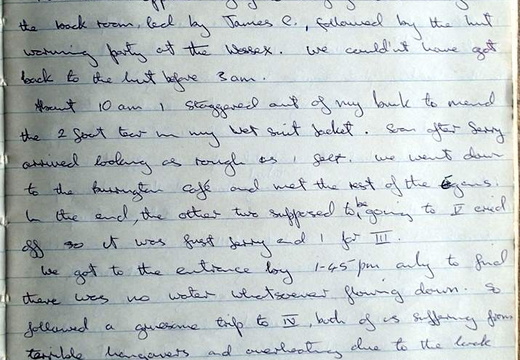 the back room, led by James C., followed by the hut
warming party at the Wessex. We couldn't have got
back to the hut before 3am.
About 10 am I staggered out of my bunk to mend
the 2 foot tear in my wet suit jacket. Soon after Gerry
arrived looking as rough as I felt. We went down
to the Burrington café and met the rest of the
In the end, the other two supposed to be going to V cried
off so it was just Gerry and I for III.
We got to the entrance by 1-45 pm only to find
there was no water whatsoever flowing down. So
followed a gruesome trip to IV, both of us suffering from
terrible hangovers and overheating due to the lack